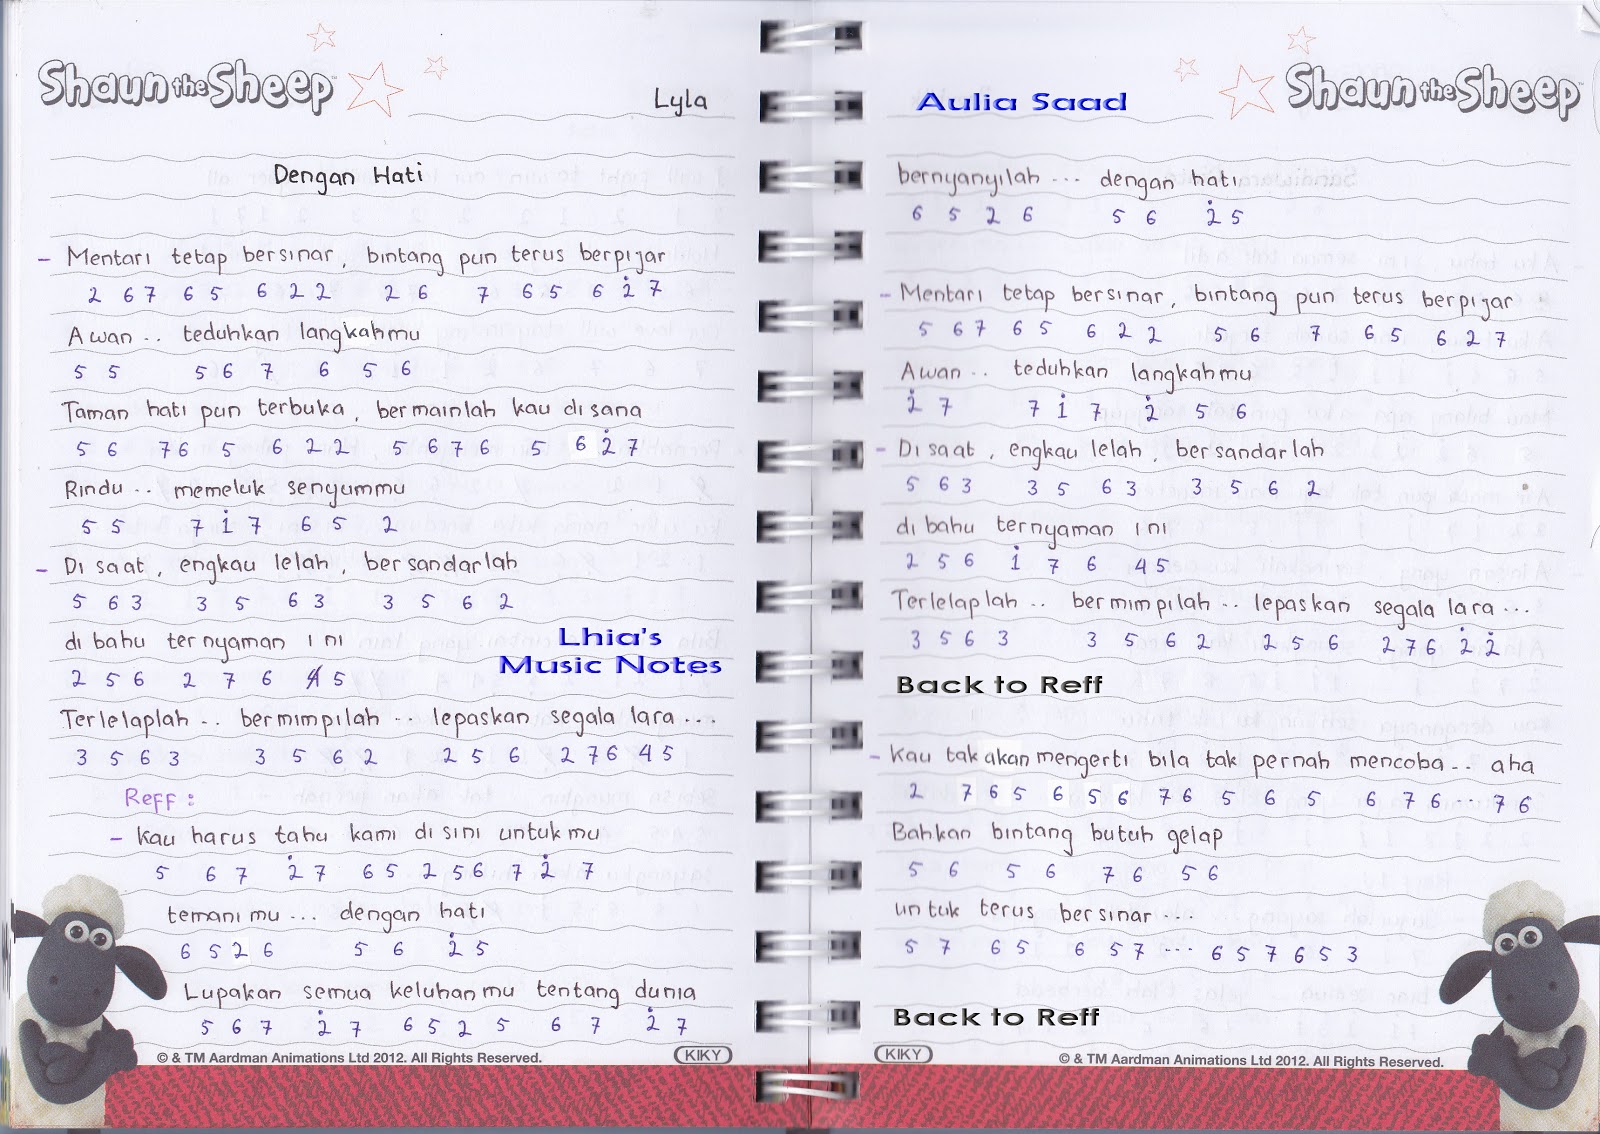 Shaun the Sheep™
Lyla
Dengan Hati
- Mentari tetap bersinar, bintang pun terus berpijar
2 6 7 6 5 6 2 2 2 6 7 6 5 6 2̇ 7
Awan .. teduhkan langkahmu
5 5 5 6 7 6 5 6
Taman hati pun terbuka, bermainlah kau disana
5 6 7 6 5 6 2 2 5 6 7 6 5 6 2̇ 7
Rindu .. memeluk senyummu
5 5 7 1̇ 7 6 5 2
- Di saat, engkau lelah, bersandarlah
5 6 3 3 5 6 3 3 5 6 2
di bahu ternyaman ini
2 5 6 2 7 6 4 5
Lhia's
Music Notes
Terlelaplah .. bermimpilah .. lepaskan segala lara ...
3 5 6 3 3 5 6 2 2 5 6 2 7 6 4 5
Reff :
- Kau harus tahu kami disini untukmu
5 6 7 2̇ 7 6 5 2 5 6 7 2̇ 7
temanimu ... dengan hati
6 5 2 6 5 6 2̇ 5
Lupakan semua keluhanmu tentang dunia
5 6 7 2̇ 7 6 5 2 5 6 7 2̇ 7
© & TM Aardman Animations Ltd 2012. All Rights Reserved.
KIKY
Aulia Saad
Shaun the Sheep™
bernyanyilah ... dengan hati
6 5 2 6 5 6 2̇ 5
- Mentari tetap bersinar, bintang pun terus berpijar
5 6 7 6 5 6 2 2 5 6 7 6 5 6 2 7
Awan .. teduhkan langkahmu
2̇ 7 7 1̇ 7 2̇ 5 6
- Di saat, engkau lelah, bersandarlah
5 6 3 3 5 6 3 3 5 6 2
di bahu ternyaman ini
2 5 6 1̇ 7 6 4 5
Terlelaplah .. bermimpilah .. lepaskan segala lara ...
3 5 6 3 3 5 6 2 2 5 6 2 7 6 2̇ 2̇
Back to Reff
- Kau tak akan mengerti bila tak pernah mencoba .. aha
2 7 6 5 6 5 6 7 6 5 6 5 6 7 6 ... 7 6
Bahkan bintang butuh gelap
5 6 5 6 7 6 5 6
untuk terus bersinar ....
5 7 6 5 6 5 7 ... 6 5 7 6 5 3
Back to Reff
KIKY
© & TM Aardman Animations Ltd 2012. All Rights Reserved.